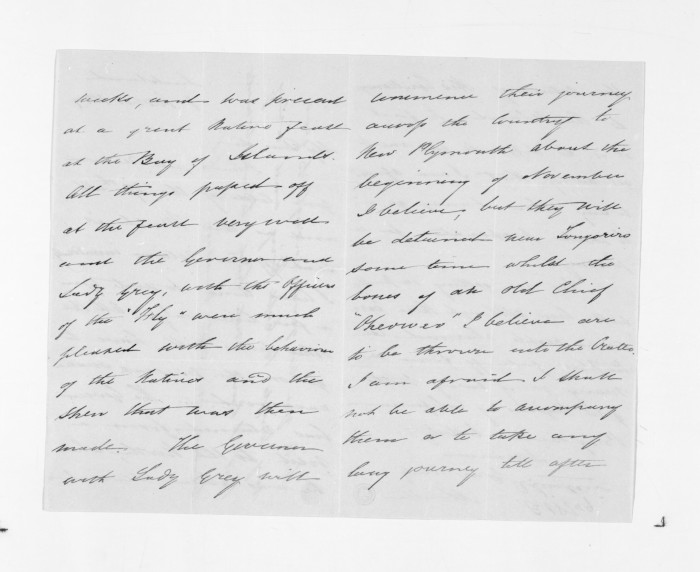 weeks, and was present
at a great Native feast
at the Bay of Islands.
All things passed off
at the feast very well
and the Governor and
Lady Grey, with the Officers
of the "Fly" were much
pleased with the behaviour
of the Natives and the
shew that was then
made. The Governor
with Lady Grey will
commence their journey
across the Country to
New Plymouth about the
beginning of November
I believe, but they will
be detained near Tongariro
some time whilst the
bones of an old Chief
I believe are
to be thrown into the Crater.
I am afraid I shall
not be able to accompany
them or to take any
long journey till after